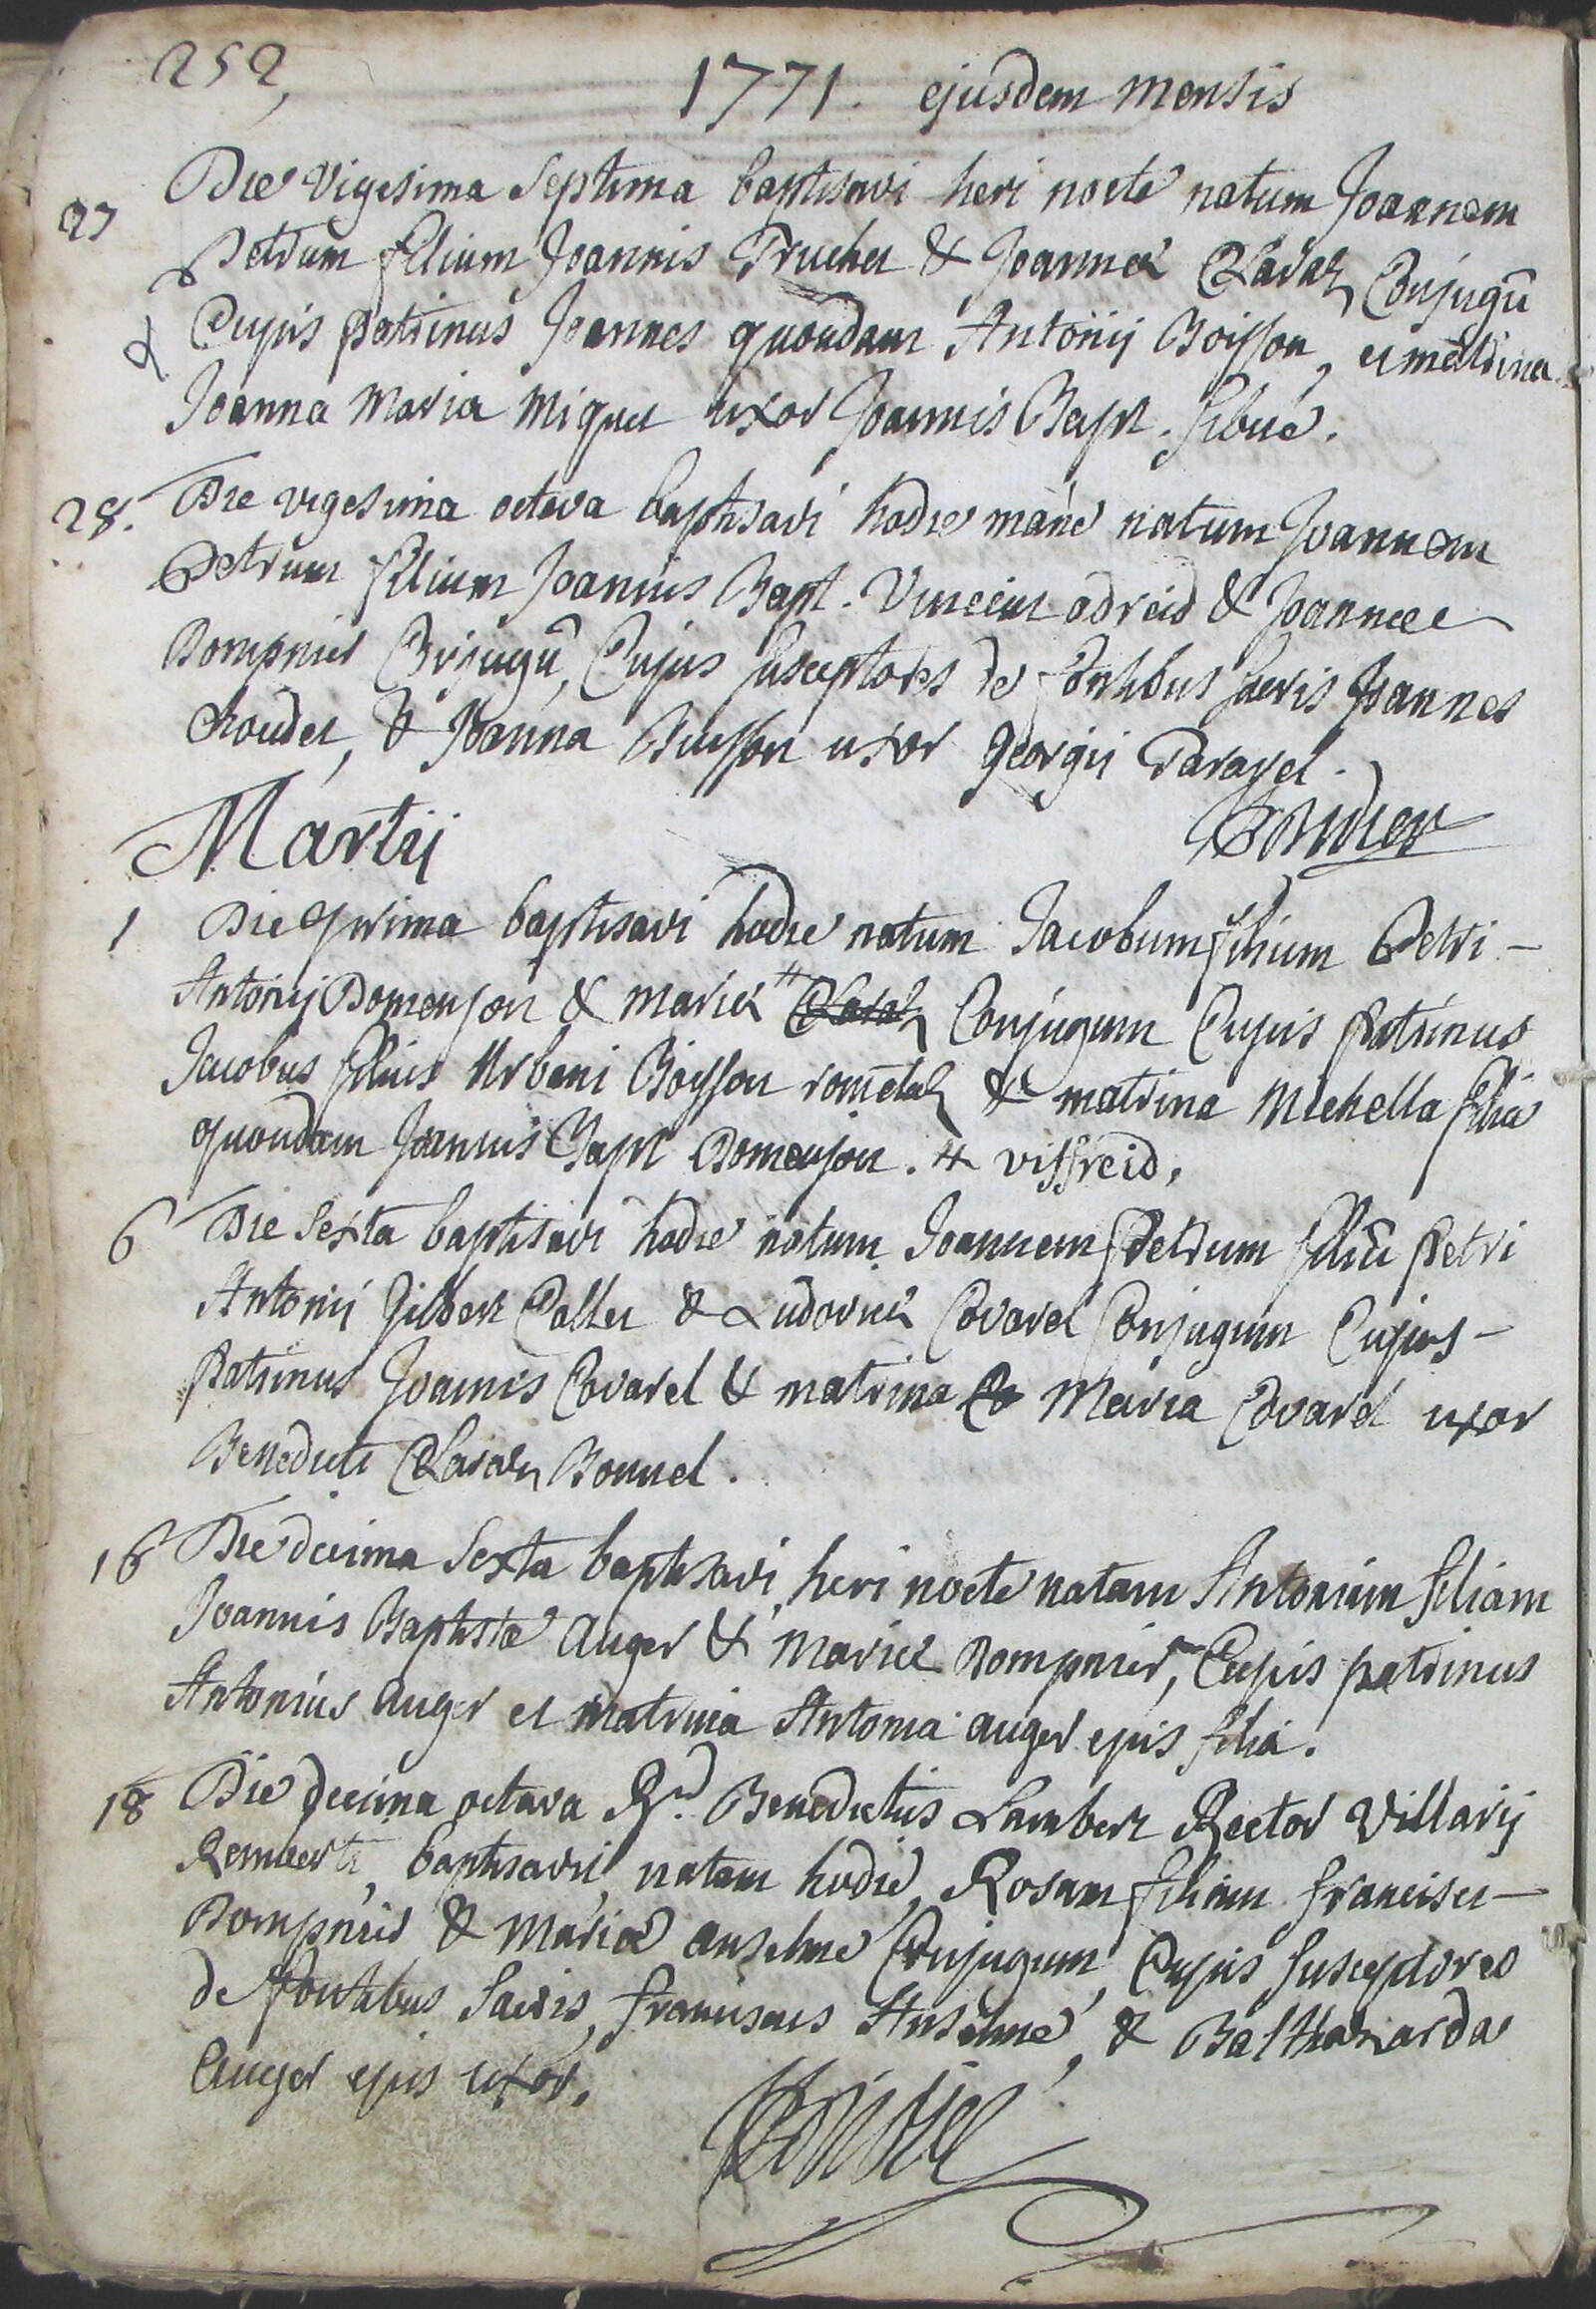 252,
1771. ejusdem mensis
27 Die vigesima septima baptisavi heri nocte natum Joannem
Petrum filium Joannis Truchet & Joannæ Claraz Conjugū
Cujus patrinus Joannes quondam Antonij Boisson, et matrina
Joanna Maria Miquet uxor Joannis Bapt. Sibué.
28. Die vigesima octava baptisavi hodie mane natum Joannem
Petrum filium Joannis Bapt. Vincent adreid & Joannæ
Dompnier Conjugū, Cujus susceptores de fontibus sacris Joannes
Choudet, & Joanna Buisson uxor Georgii Paravel.
Martij
1 Die prima baptisavi hodie natum Jacobum filium Petri
Antonij Domenjon & Mariæ # Claraz Conjugum Cujus patrinus
Jacobus filius Urbani Boisson rometaz & matrina Michella filia
quondam Joannis Bapt Domenjon. # viffreid.
6 Die sexta baptisavi hodie natum Joannem Petrum filiū Petri
Antonij Gilbert Collet & Ludovicæ Covarel Conjugum Cujus
Patrinus Joannis Covarel & matrina Co Maria Covarel uxor
Benedicti Claraz Bonnel.
16 Die decima sexta baptisavi heri nocte natam Antoniam filiam
Joannis Baptistæ Auger & Mariæ Dompnier, Cujus patrinus
Antonius Auger et matrina Antonia Auger ejus filia.
18 Die decima octava Rd. Benedictus Lambert Rector Villarij
Remberti, baptisavit natam hodie Rosam filiam francisci
Dompnier & Mariæ Anselme Conjugum, Cujus susceptores
de fontibus sacris, franciscus Anselme, & Balthazarda
Auger ejus uxor.